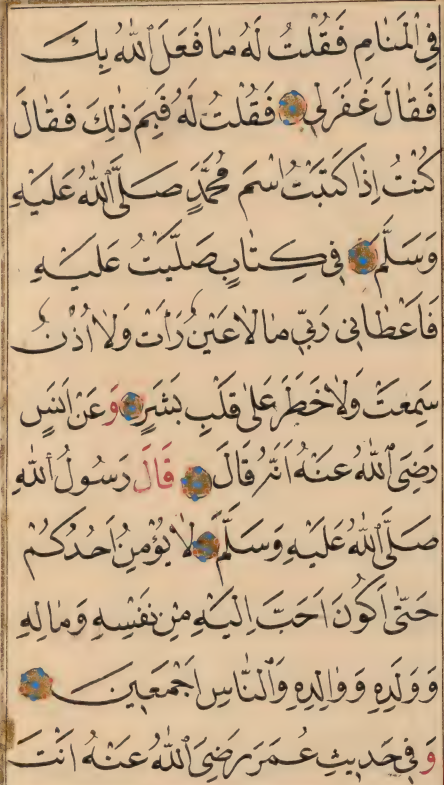 فِي الْمَنَامِ فَقُلْتُ لَهُ مَا فَعَلَ اللهُ بِكَ
فَقَالَ غَفَرَلِي فَقُلْتُ لَهُ فَبِمَ ذٰلِكَ فَقَالَ
كُنْتُ اِذَا كَتَبْتُ اسْمَ مُحَمَّدٍ صَلَّى اللهُ عَلَيْهِ
وَسَلَّمَ فِي كِتَابٍ صَلَّيْتُ عَلَيْهِ
فَاَعْطَانِي رَبِّي مَا لَا عَيْنٌ رَاَتْ وَلَا اُذُنٌ
سَمِعَتْ وَلَا خَطَرَ عَلٰى قَلْبِ بَشَرٍ وَعَنْ اَنَسٍ
رَضِيَ اللهُ عَنْهُ اَنَّهُ قَالَ قَالَ رَسُولُ اللهِ
صَلَّى اللهُ عَلَيْهِ وَسَلَّمَ لَا يُؤْمِنُ اَحَدُكُمْ
حَتّٰى اَكُونَ اَحَبَّ اِلَيْهِ مِنْ نَفْسِهِ وَمَالِهِ
وَوَلَدِهِ وَوَالِدِهِ وَالنَّاسِ اَجْمَعِينَ
وَفِي حَدِيثِ عُمَرَ رَضِيَ اللهُ عَنْهُ اَنْتَ